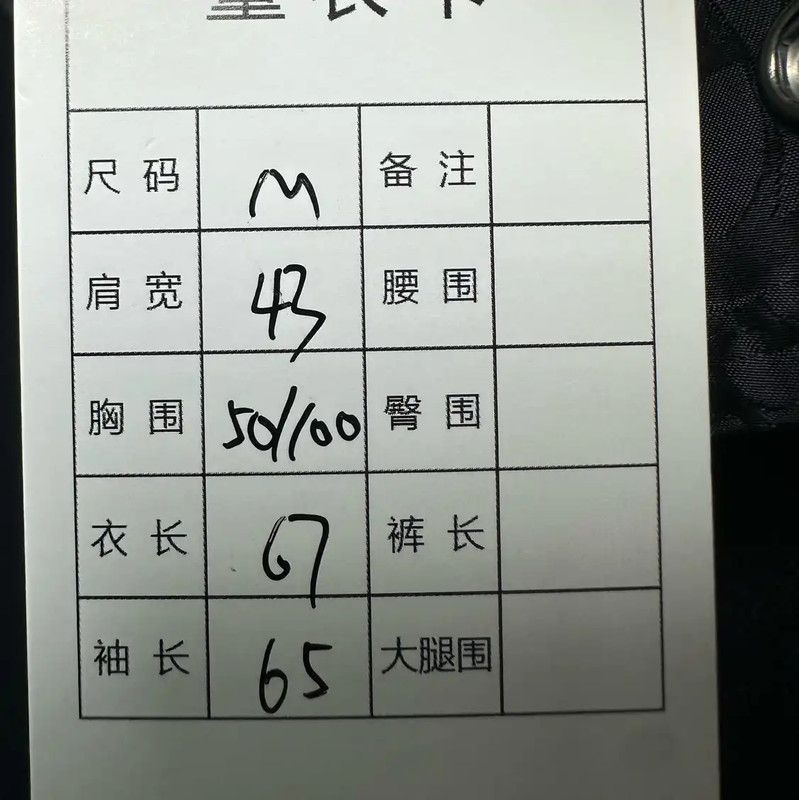 量衣卡
尺码 M 备注
肩宽 43 腰围
胸围 50/100 臀围
衣长 67 裤长
袖长 65 大腿围